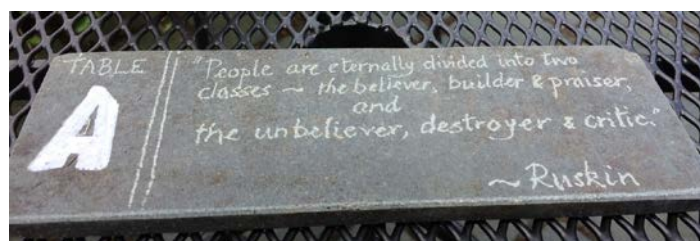 TABLE
A
"People are eternally divided into two
classes ~ the believer, builder & praiser,
and
the unbeliever, destroyer & critic."
~ Ruskin